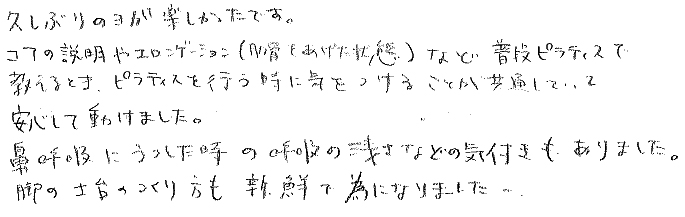 久しぶりのヨガ楽しかったです。
コアの説明やエロンゲーション(肋骨もあげた状態)など普段ピラティスで
教えるとき、ピラティスを行う時に気をつけることが共通していて
安心して動けました。
鼻呼吸にうつした時の呼吸の浅さなどの気付きもありました。
脚の土台のつくり方も新鮮で為になりました